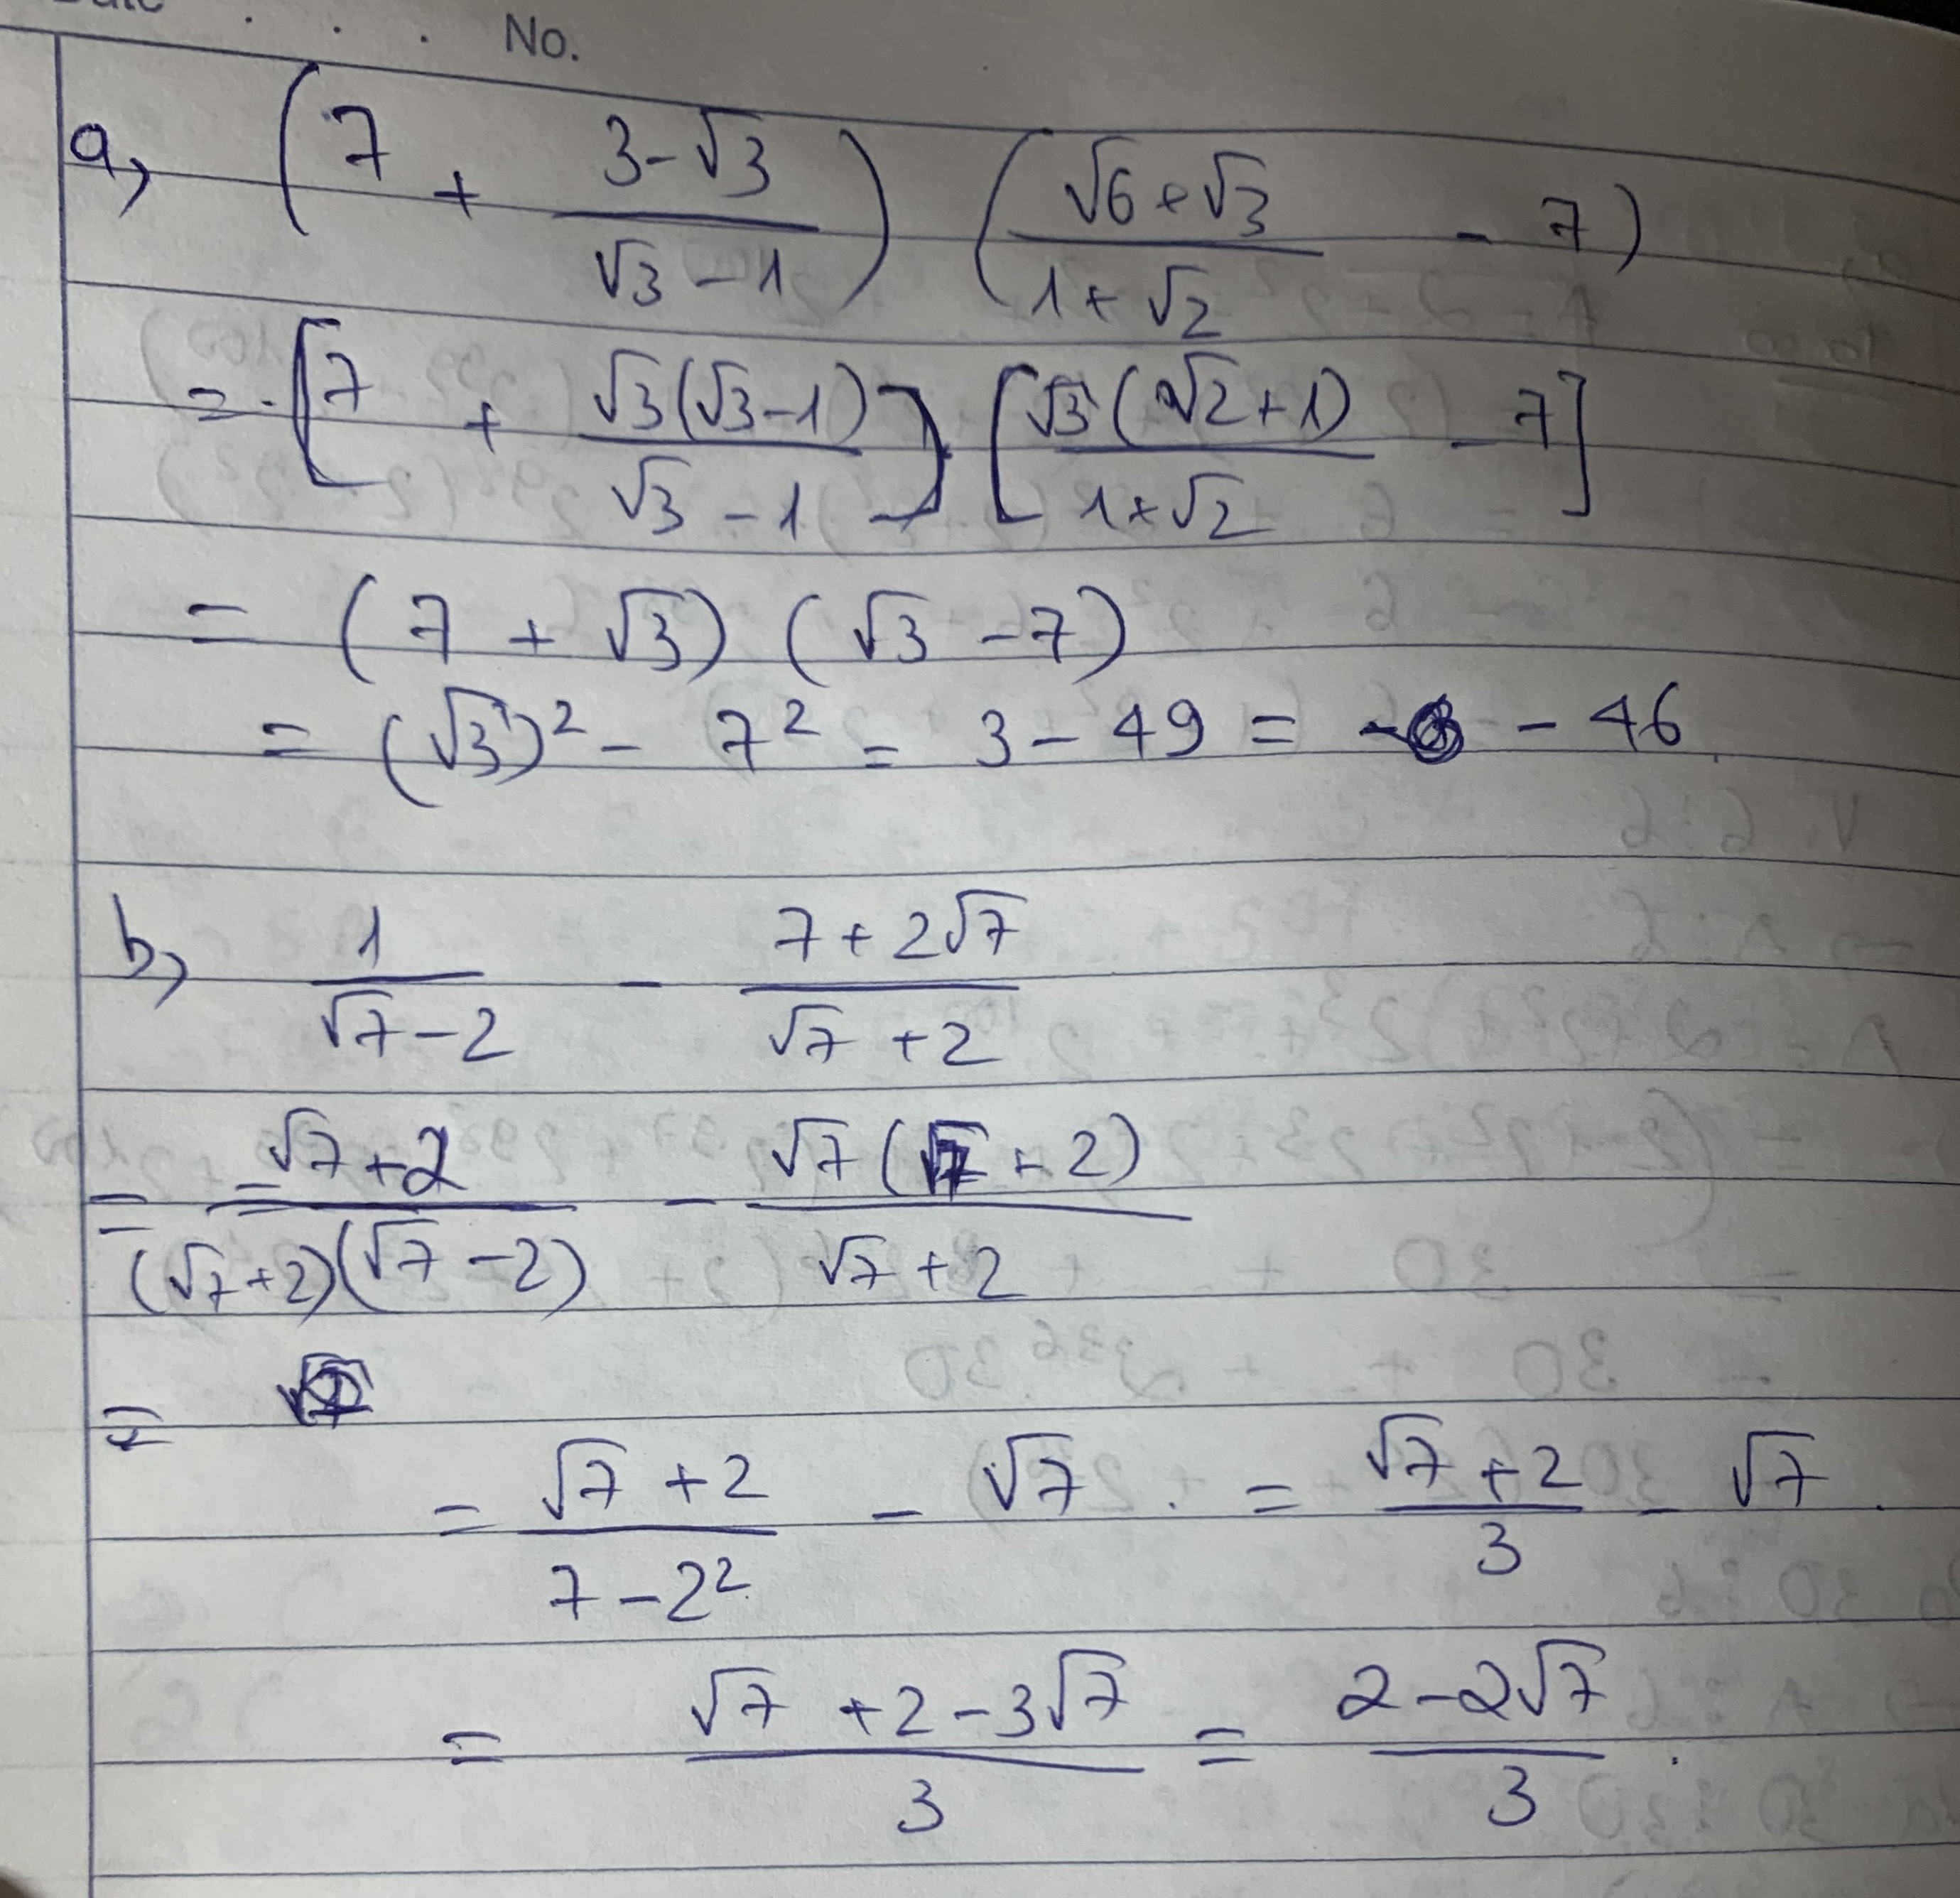 No.
a, (7 + (3-√3)/(√3-1)) ((√6+√3)/(1+√2) - 7)
= [7 + √3(√3-1)/(√3-1)] [√3(√2+1)/(1+√2) - 7]
= (7 + √3) (√3 - 7)
= (√3)² - 7² = 3 - 49 = - 46.
b, 1/(√7-2) - (7+2√7)/(√7+2)
= (√7+2)/((√7+2)(√7-2)) - √7(√7+2)/(√7+2)
=
= (√7+2)/(7-2²) - √7 . = (√7+2)/3 - √7 .
= (√7+2-3√7)/3 = (2-2√7)/3 .